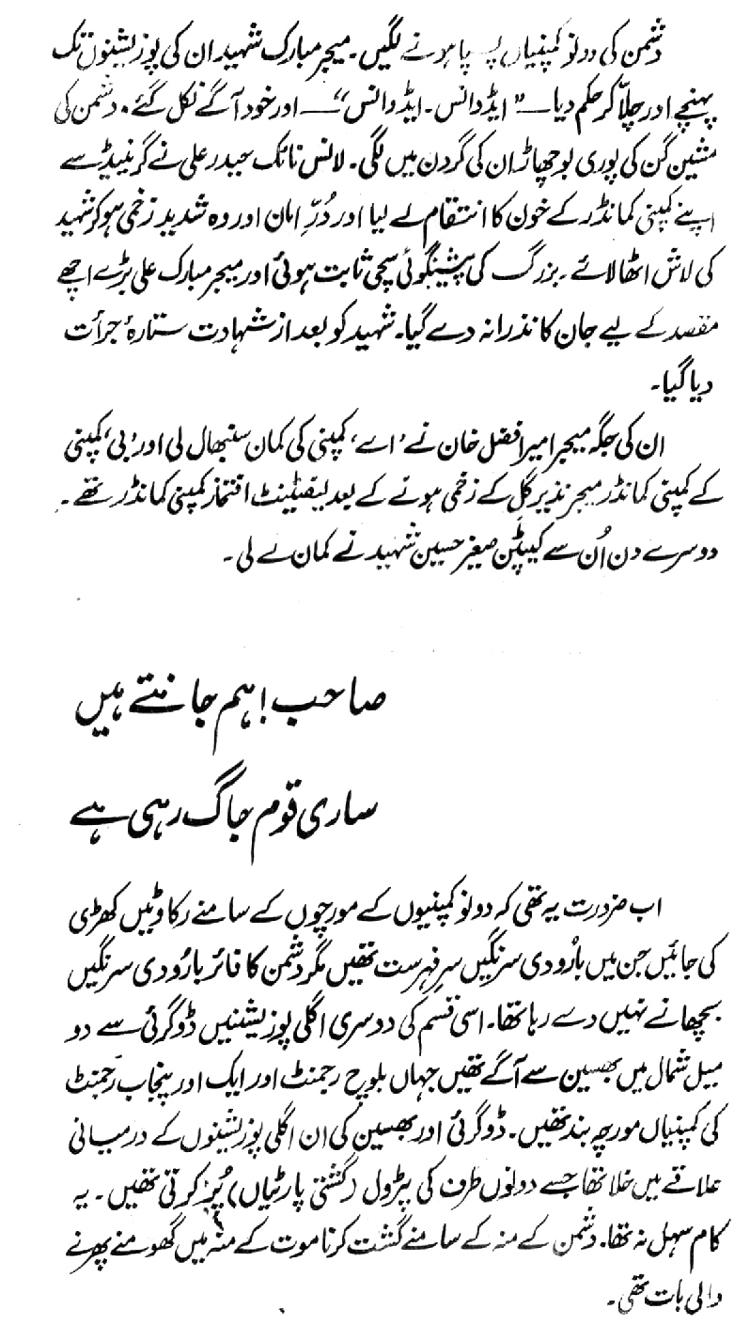 دشمن کی دونو کمپنیاں پسپا ہونے لگیں۔ میجر مبارک شہید ان کی پوزیشنوں تک
پہنچے اور چلّا کر حکم دیا — ”ایڈوانس۔ ایڈوانس“ — اور خود آگے نکل گئے۔ دشمن کی
مشین گن کی پوری بوچھاڑ ان کی گردن میں لگی۔ لانس نائک حیدر علی نے گرنیڈ سے
اپنے کمپنی کمانڈر کے خون کا انتقام لے لیا اور دُرِّ امان اور وہ شدید زخمی ہو کر شہید
کی لاش اٹھا لائے۔ بزرگ کی پیشینگوئی سچی ثابت ہوئی اور میجر مبارک علی بڑے اچھے
مقصد کے لیے جان کا نذرانہ دے گیا۔ شہید کو بعد از شہادت ستارۂ جرأت
دیا گیا۔
ان کی جگہ میجر امیر افضل خان نے ’اے‘ کمپنی کی کمان سنبھال لی اور ’بی‘ کمپنی
کے کمپنی کمانڈر میجر نذیر گل کے زخمی ہونے کے بعد لیفٹیننٹ افتخار کمپنی کمانڈر تھے۔
دوسرے دن اُن سے کیپٹن صغیر حسین شہید نے کمان لے لی۔
صاحب! ہم جانتے ہیں
ساری قوم جاگ رہی ہے
اب ضرورت یہ تھی کہ دونو کمپنیوں کے مورچوں کے سامنے رکاوٹیں کھڑی
کی جائیں جن میں بارُودی سرنگیں سرِفہرست تھیں مگر دشمن کا فائر بارُودی سرنگیں
بچھانے نہیں دے رہا تھا۔ اسی قسم کی دوسری اگلی پوزیشنیں ڈوگرئی سے دو
میل شمال میں بھسین سے آگے تھیں جہاں بلوچ رجمنٹ اور ایک اور پنجاب رجمنٹ
کی کمپنیاں مورچہ بند تھیں۔ ڈوگرئی اور بھسین کی ان اگلی پوزیشنوں کے درمیانی
علاقے میں خلا تھا جسے دونوں طرف کی پٹرول (گشتی پارٹیاں) پُر کرتی تھیں۔ یہ
کام سہل نہ تھا۔ دشمن کے منہ کے سامنے گشت کرنا موت کے منہ میں گھومنے پھرنے
والی بات تھی۔